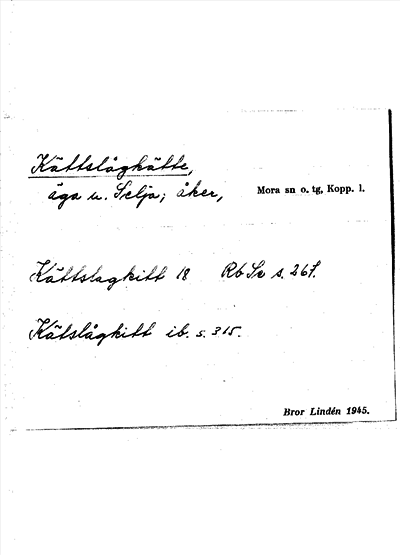 Kättslåghätte,
äga u. Selja; åker,
Mora sn o. tg, Kopp. l.
Kättslaghitt 18 Rb Se s. 267.
Kätslåghitt ib. s. 315.
Bror Lindén 1945.